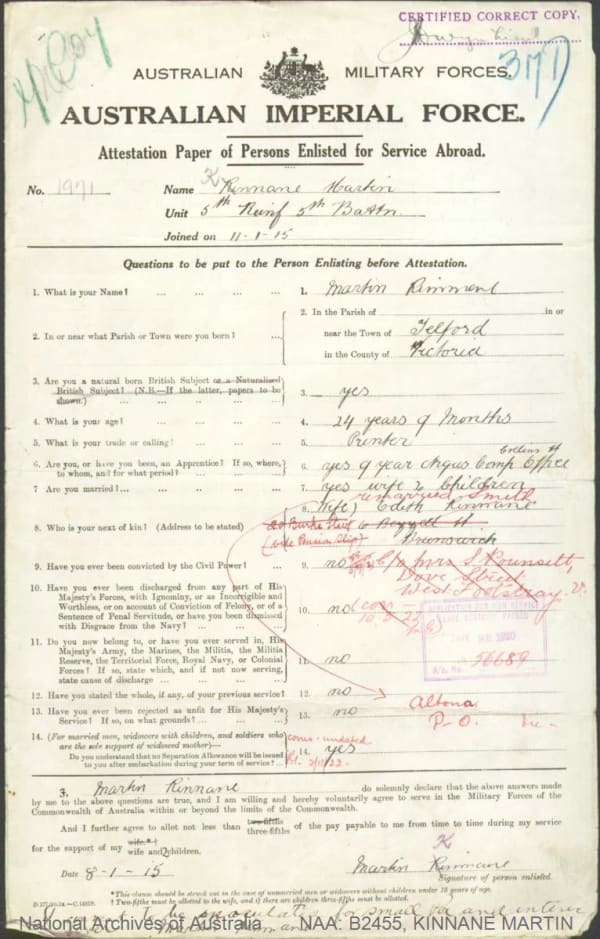 CERTIFIED CORRECT COPY.
377
AUSTRALIAN MILITARY FORCES.
AUSTRALIAN IMPERIAL FORCE.
Attestation Paper of Persons Enlisted for Service Abroad.
No. 1971 Name Kinnane Martin
K
Unit 5th Reinf 5th Battn.
Joined on 11-1-15
Questions to be put to the Person Enlisting before Attestation.
1. What is your Name? ... ... ... ... 1. Martin
2. In or near what Parish or Town were you born? ... 2. In the Parish of in or
near the Town of Telford
in the County of Victoria
3. Are you a natural born British Subject or a Naturalised British Subject? (N.B.—If the latter, papers to be shown.) ... 3. yes
4. What is your age? ... 4. 24 years 9 Months
5. What is your trade or calling? ... 5. Printer
6. Are you, or have you been, an Apprentice? If so, where, to whom, and for what period? ... 6. yes 9 year Argus Comp Office
Collins St
7. Are you married? ... 7. yes wife 2 Children
remarried Smith
8. Who is your next of kin? (Address to be stated) ... 8. (Wife) Edith Kinnane
20 Burke Street 6 St
(vide Pension Slip) Brunswick
9. Have you ever been convicted by the Civil Power? ... 9. no
C/o Mrs S. Rounsell,
Dove Street
West Footscray. V.
10. Have you ever been discharged from any part of His Majesty's Forces, with Ignominy, or as Incorrigible and Worthless, or on account of Conviction of Felony, or of a Sentence of Penal Servitude, or have you been dismissed with Disgrace from the Navy? ... 10. no
APPLICATION FOR WAR SERVICE
56689
11. Do you now belong to, or have you ever served in, His Majesty's Army, the Marines, the Militia, the Militia Reserve, the Territorial Force, Royal Navy, or Colonial Forces? If so, state which, and if not now serving, state cause of discharge ... 11. no
12. Have you stated the whole, if any, of your previous service? 12. no
13. Have you ever been rejected as unfit for His Majesty's Service? If so, on what grounds? ... 13. no
Altona
P-O.
14. (For married men, widowers with children, and soldiers who are the sole support of widowed mother)—
Do you understand that no Separation Allowance will be issued to you after embarkation during your term of service? ... 14. yes
undated
I, Martin Kinnane do solemnly declare that the above answers made
by me to the above questions are true, and I am willing and hereby voluntarily agree to serve in the Military Forces of the
Commonwealth of Australia within or beyond the limits of the Commonwealth.
And I further agree to allot not less than two-fifths three-fifths of the pay payable to me from time to time during my service
for the support of my wife.*† wife and children.
K
Date 8-1-15 Martin Kinnane
Signature of person enlisted.
*This clause should be struck out in the case of unmarried men or widowers without children under 18 years of age.
† Two-fifths must be allotted to the wife, and if there are children three-fifths must be allotted.
to be for small pox and enteric
National Archives of Australia NAA: B2455, KINNANE MARTIN